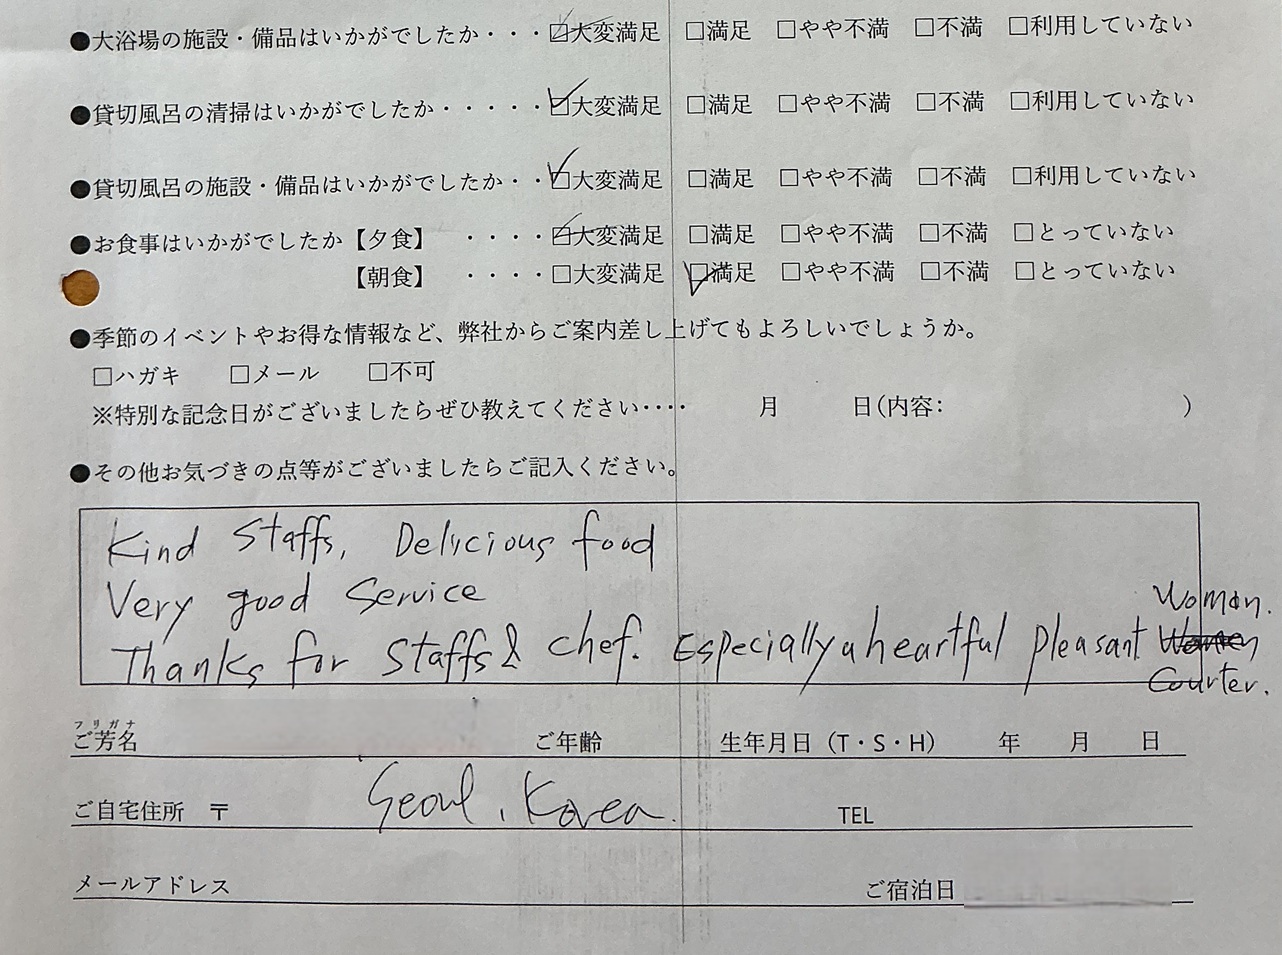 ●大浴場の施設・備品はいかがでしたか・・・□大変満足 □満足 □やや不満 □不満 □利用していない
●貸切風呂の清掃はいかがでしたか・・・・・□大変満足 □満足 □やや不満 □不満 □利用していない
●貸切風呂の施設・備品はいかがでしたか・・□大変満足 □満足 □やや不満 □不満 □利用していない
●お食事はいかがでしたか【夕食】 ・・・・□大変満足 □満足 □やや不満 □不満 □とっていない
【朝食】 ・・・・□大変満足 □満足 □やや不満 □不満 □とっていない
●季節のイベントやお得な情報など、弊社からご案内差し上げてもよろしいでしょうか。
□ハガキ □メール □不可
※特別な記念日がございましたらぜひ教えてください‥‥ 月 日(内容: )
●その他お気づきの点等がございましたらご記入ください。
Kind Staffs, Delicious food
Very good Service
Thanks for Staffs & chef. Especially a heartful pleasant Woman.
Courter.
フリガナ
ご芳名 ご年齢 生年月日（T・S・H） 年 月 日
ご自宅住所 〒 Seoul, Korea. TEL
メールアドレス ご宿泊日